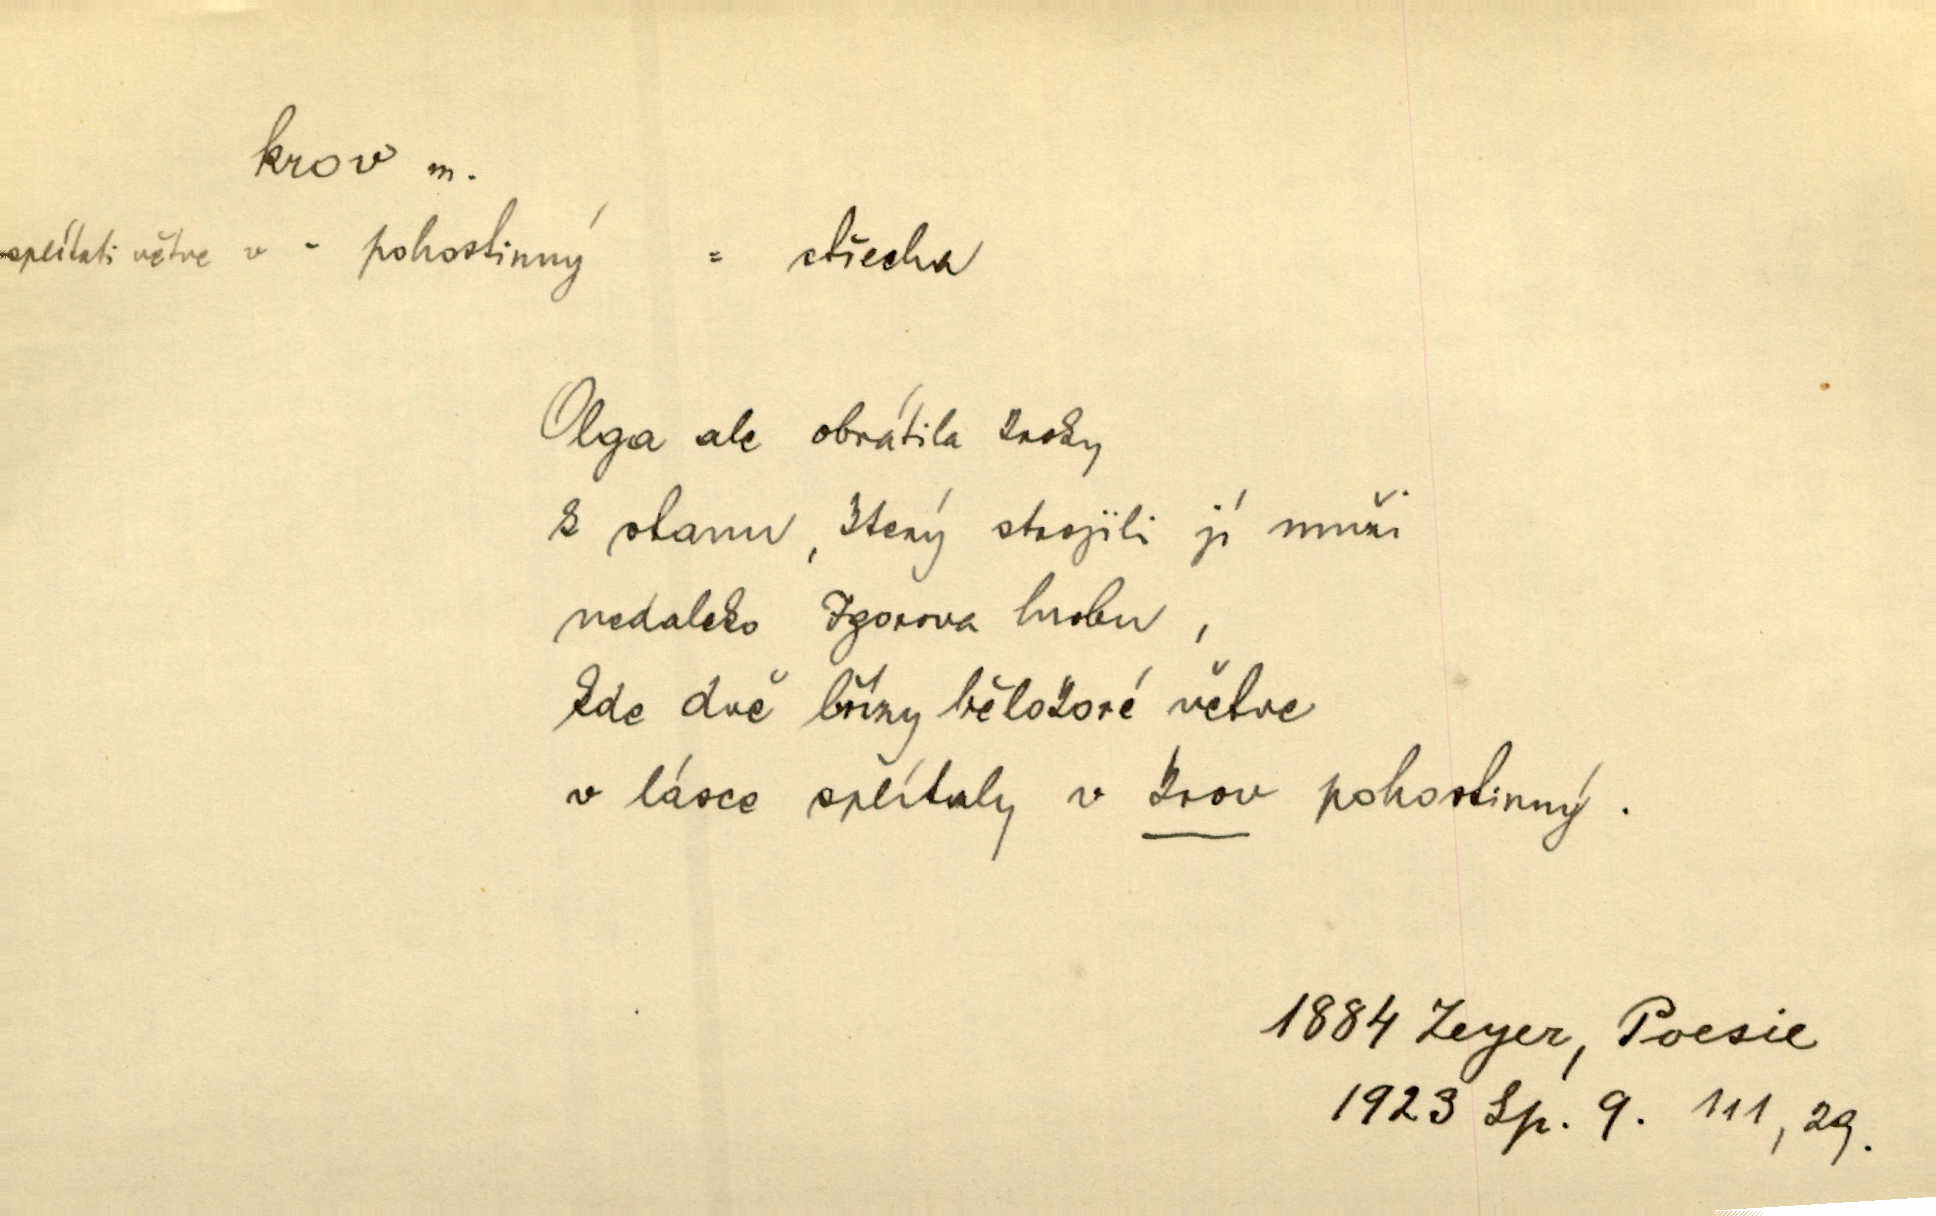 krov m.
splítati větve v - pohostinný = střecha
Olga ale obrátila kroky
k stanu, který strojili jí muži
nedaleko Igorova hrobu,
kde dvě břízy bělokoré větve
v lásce splítaly v krov pohostinný.
1884 Zeyer, Poesie
1923 Sp. 9. 111, 29.